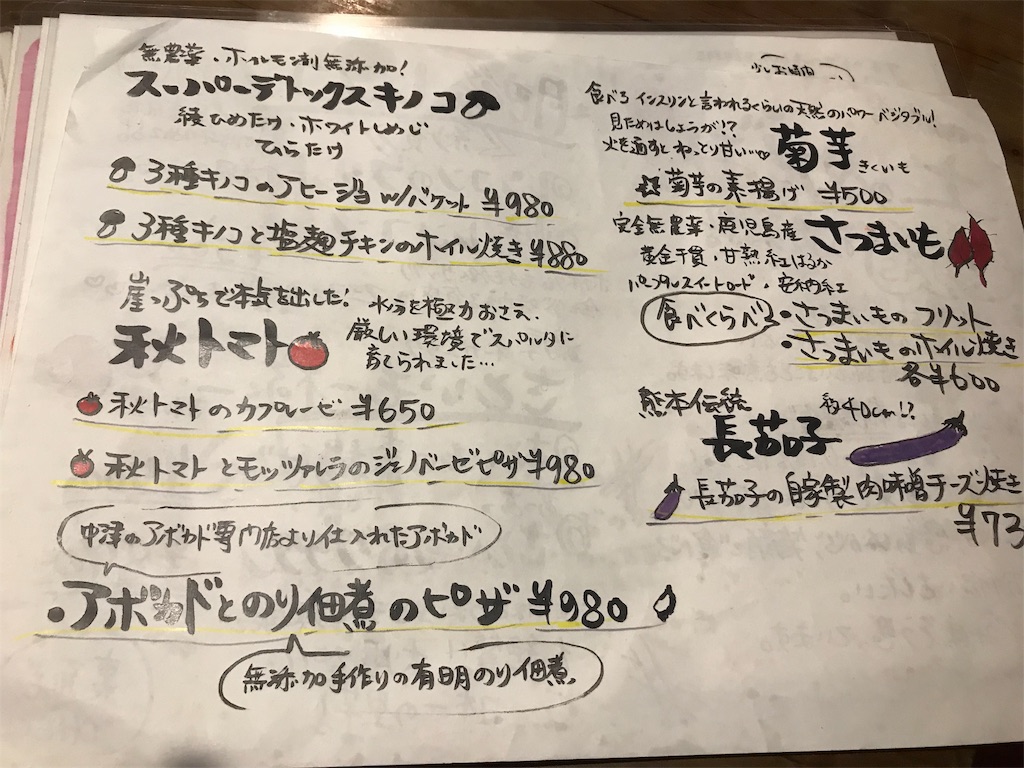 無農薬・ホルモン剤無添加!
スーパーデトックスキノコ
ひめたけ・ホワイトしめじ
ひらたけ
3種キノコのアヒージョ w/バケット ¥980
3種キノコと塩麹チキンのホイル焼き ¥880
崖っぷちで本気を出した!
秋トマト
水分を極力おさえ、
厳しい環境でスパルタに
育てられました…
秋トマトのカプレーゼ ¥650
秋トマトとモッツァレラのジェノベーゼピザ ¥980
中津のアボカド専門店より仕入れたアボカド
・アボカドとのり佃煮のピザ ¥980
無添加手作りの有明のり佃煮
食べるインスリンと言われるくらいの天然のパワーベジタブル!
見ためはしょうが!?
火を通すとねっとり甘い…♡
菊芋
きくいも
菊芋の素揚げ ¥500
安全無農薬・鹿児島産
さつまいも
黄金千貫・甘熟紅はるか
パープルスイートロード・安納紅
食べくらべ♪
・さつまいものフリット
・さつまいものホイル焼き
各¥600
熊本伝統
長茄子
約40cm!?
長茄子の自家製肉味噌チーズ焼き
¥73